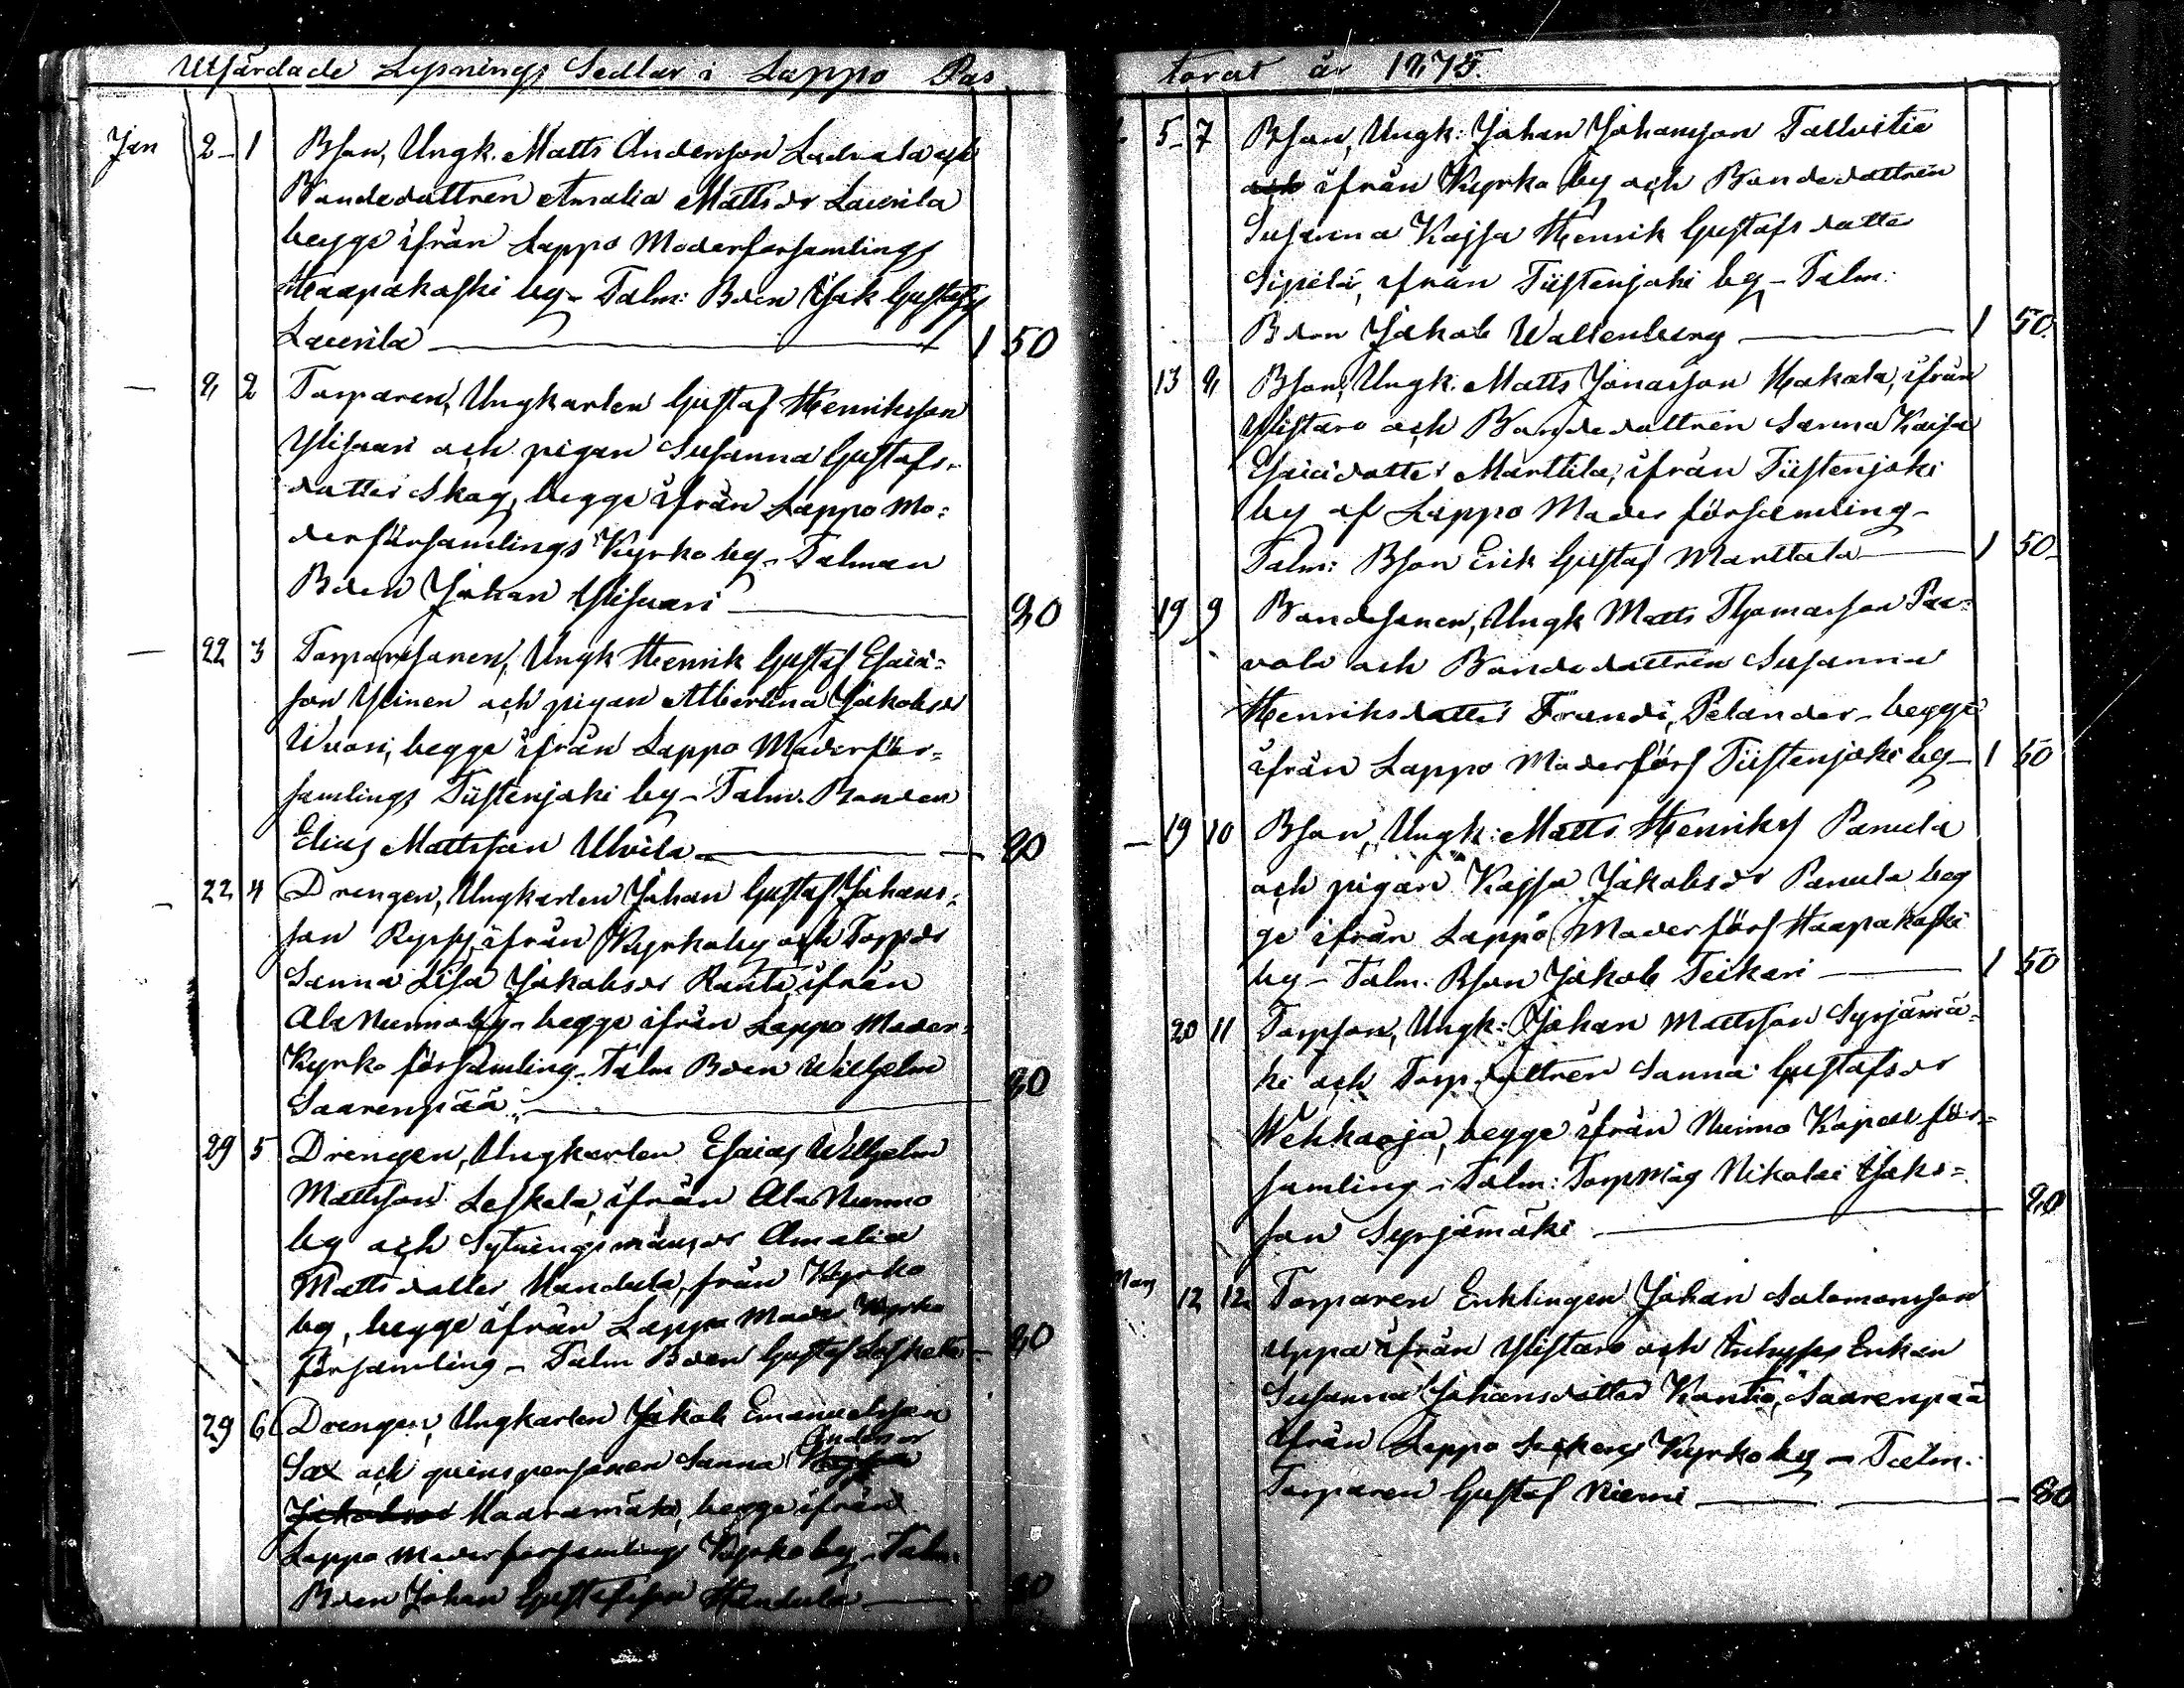 Utfärdade Lysnings Sedlar i Lappo Pas
Jan 2 1 Bson, Ungk. Matts Andersson och
Bondedottren Amalia Mattsdr Laurila
begge ifrån Lappo Moderförsamlings
Haapakoski by - Talm: Bden Isak Gustafss
Laurila 1 50
— 8 2 Torparen, Ungkarlen Gustaf Henriksson
Ylisaari och pigan Susanna Gustafs-
dotter Skog, begge ifrån Lappo Mo=
derförsamlings Kyrkoby - Talman
Bden Johan Ylisaari 80
— 22 3 Torparesonen, Ungk Henrik Gustaf Esaias=
son Ylinen och pigan Albertina Jakobsdr
Wuori, begge ifrån Lappo Moderför=
samlings Tiistenjoki by - Talm. Bonden
Elias Mattsson Ulvila 80
— 22 4 Drengen, Ungkarlen Johan Gustaf Johans=
son ifrån Kyrkoby och Torpdr
Sanna Lisa Jakobsdr Ranta ifrån
Ala Nurmo by - begge ifrån Lappo Moder=
Kyrko församling. Talm Bden Wilhelm
Saarenpää 80
29 5 Drengen, Ungkarlen Esaias Wilhelm
Mattsson Leskela, ifrån Ala Nurmo
by och Sytningsmansdr Amalia
Matts dotter från Kyrko
by, begge ifrån Lappo Moder Kyrko
församling - Talm Bden Gustaf Leskela 80
29 6 Drengen, Ungkarlen Jakob Emanuelsson
Andersdr
Sax och qvinspersonen Sanna
Jakobsdr Maaramäki, begge ifrån
Lappo moderförsamlings Kyrkoby - Talm.
Bden Johan Gustafsson 80
torat år 1875.
5 7 Bson, Ungk: Johan Johansson Tallvitie
och ifrån Kyrko by och Bondedottren
Susanna Kajsa Henrik Gustafs dotter
Sipilä, ifrån Tiistenjoki by - Talm:
Bden Jakob Wallenberg 1 50.
13 8 Bson, Ungk. Matts Jonasson Hakala, ifrån
Ylistaro och Bondedottren Sanna Kaisa
Esaiedotter Marttila, ifrån Tiistenjoki
by af Lappo Moder församling -
Talm: Bson Erik Gustaf 1 50
19 9 Bondesonen, Ungk Matts Thomasson Paa=
vola och Bondedottren Susanna
Henriksdotter Frandi, Pelander - begge
ifrån Lappo Moderförs Tiistenjoki by 1 50
— 19 10 Bson, Ungk: Matts Henrikss Panula
och pigan Kajsa Jakobsdr Panula beg
ge ifrån Lappo Moderförs Haapakoski
by - Talm. Bson Jakob Teikari 1 50
20 11 Torpson, Ungk: Johan Mattsson Syrjämä=
ki och Torp. dottren Sanna Gustafsdr
Wehkaoja, begge ifrån Nurmo Kapell för=
samling - Talm: Torpmåg Nikolai Isaks=
son Syrjämäki 80
Mars 12 12 Torparen Enklingen Johan Salomonsson
ifrån Ylistaro och Inhyses Enkan
Susanna Johansdotter Kantio, Saarenpää
ifrån Lappo Sockens Kyrkoby - Talm.
Torparen Gustaf Niemi 80